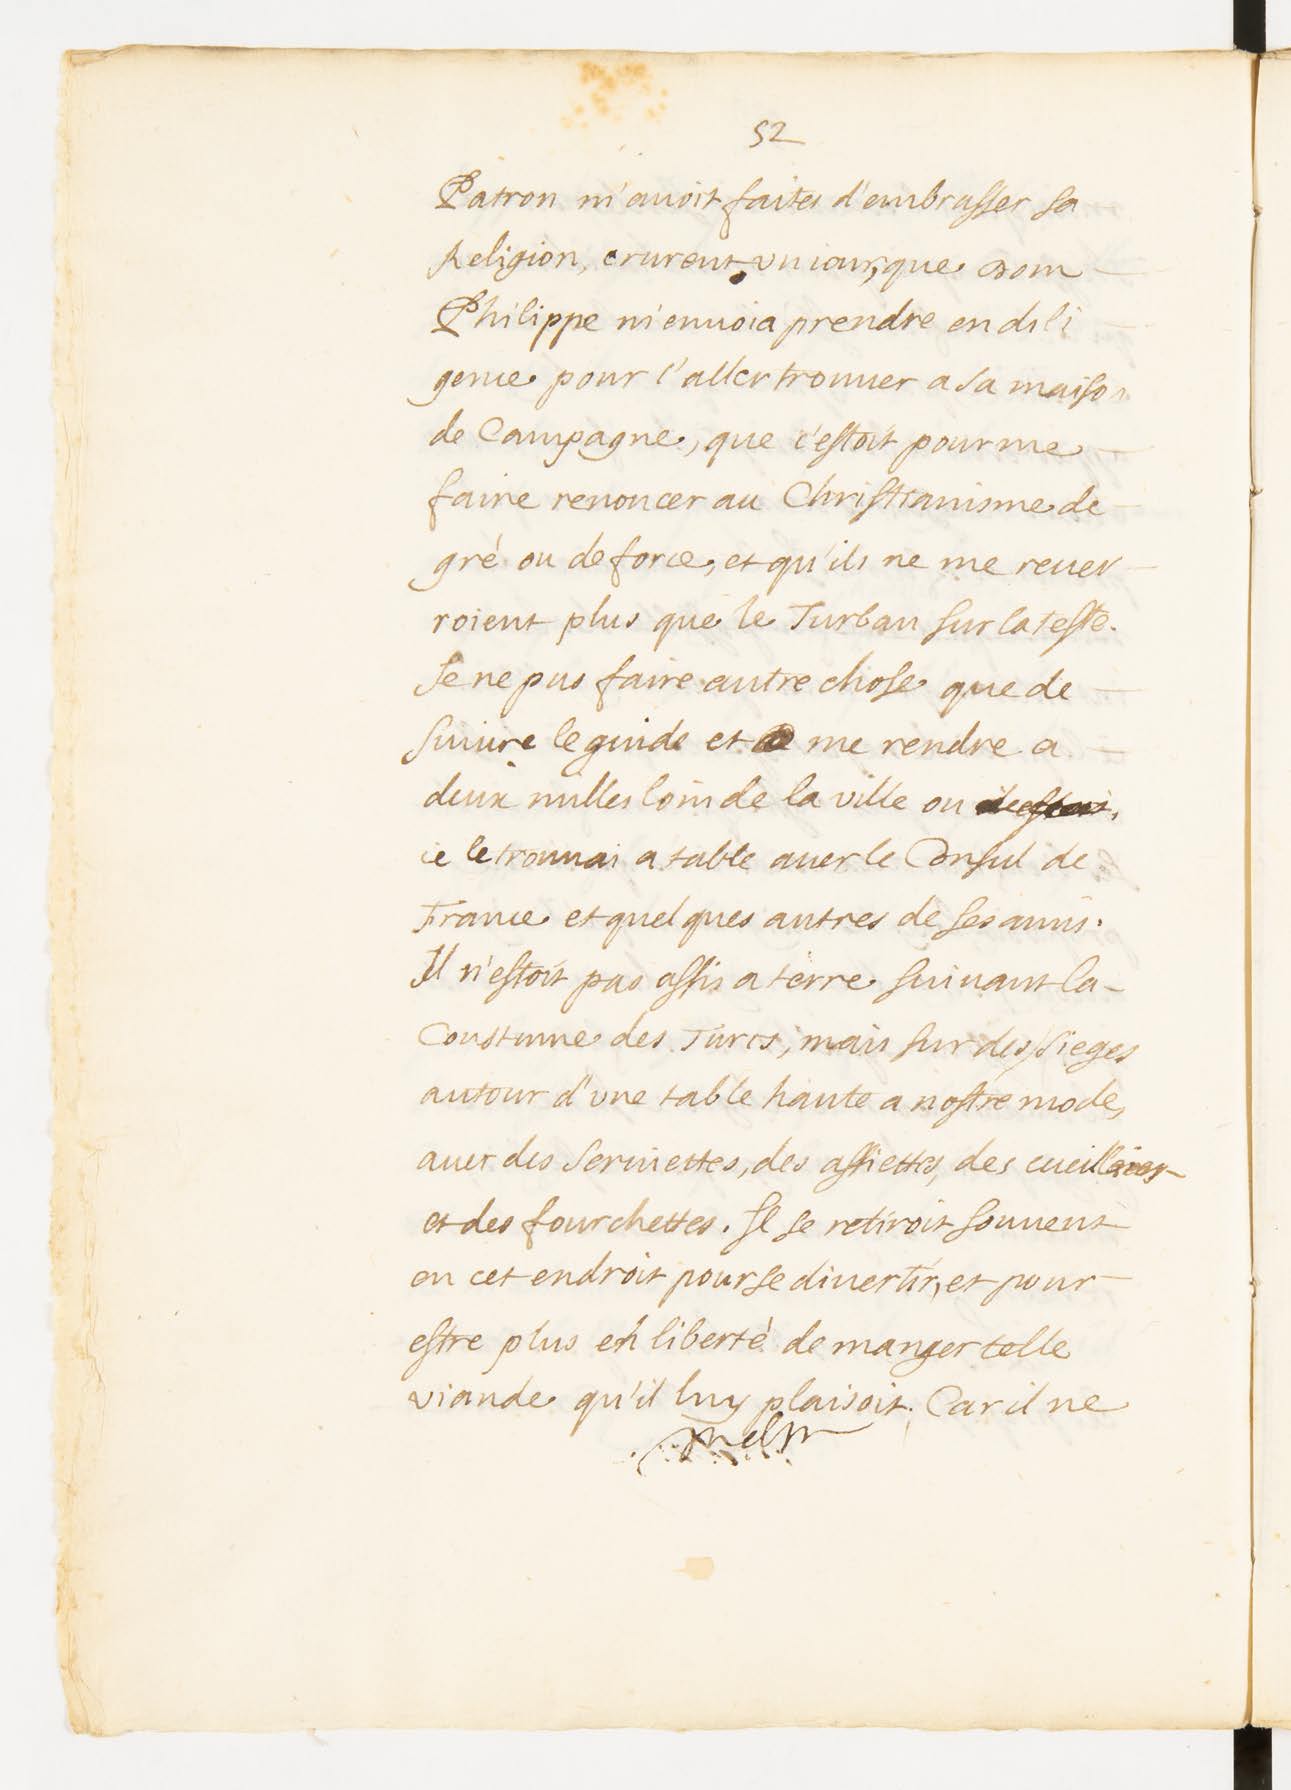 52
Patron m'auoit faites d'embrasser sa
Religion, crurent un iour, que Dom
Philippe m'enuoia prendre en dili
gence pour l'aller trouuer a sa maison
de Campagne, que c'estoit pour me
faire renoncer au Christianisme de
gré ou de force, et qu'ils ne me reuer
roient plus que le Turban sur la teste.
Je ne pus faire autre chose que de
suiure le guide et me rendre a
deux milles loin de la ville ou
ie le trouuai a table auec le Consul de
France et quelques autres de ses amis.
Il n'estoit pas assis a terre suiuant la
Coustume des Turcs, mais sur des sieges
autour d'vne table haute a nostre mode,
auec des seruiettes, des assiettes, des cueilleres
et des fourchettes. Il se retiroit souuent
en cet endroit pour se diuertir, et pour
estre plus en liberté de manger telle
viande qu'il luy plaisoit. Car il ne